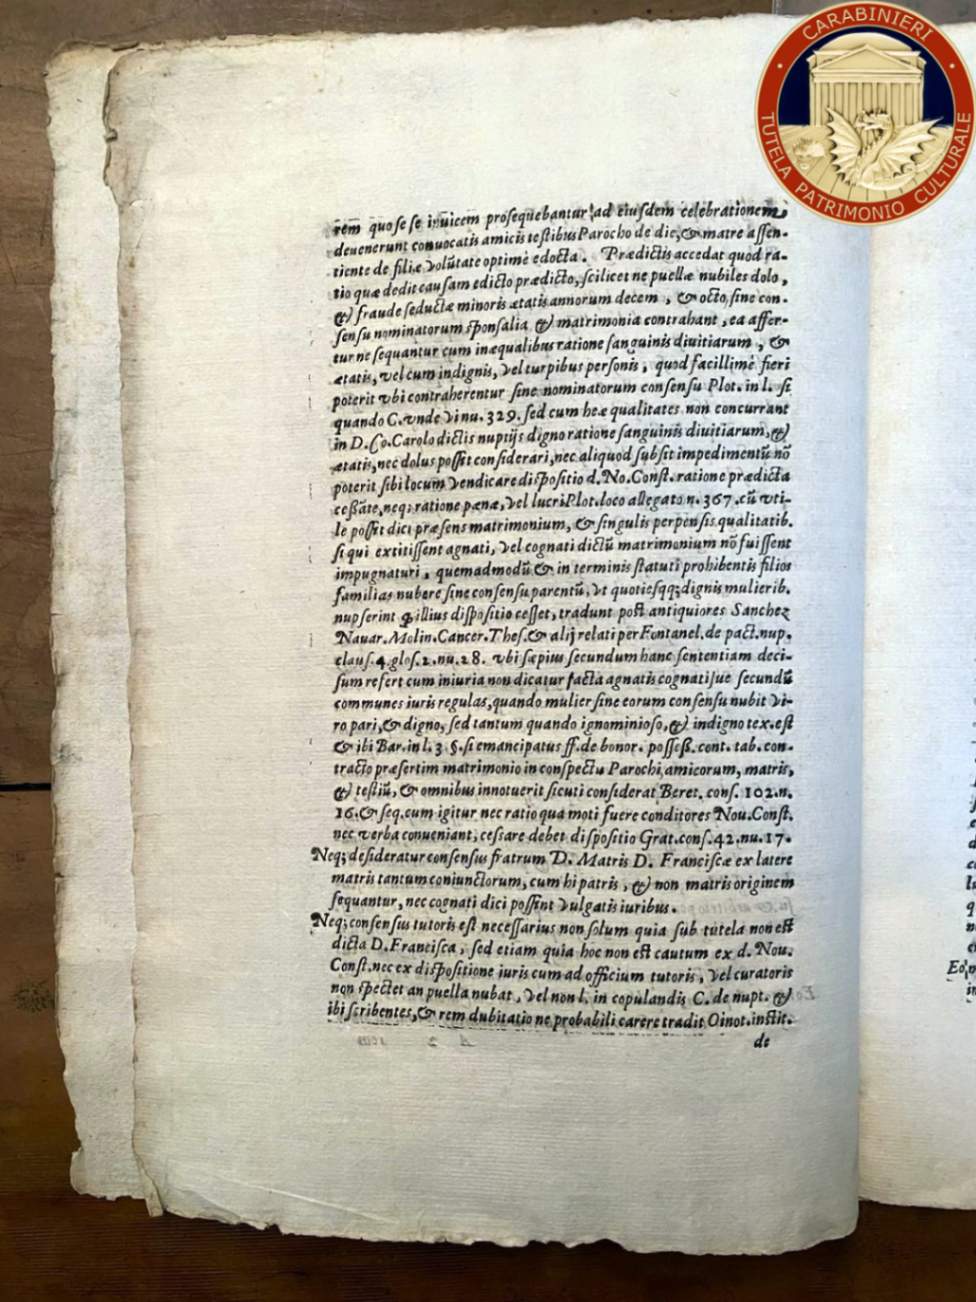 CARABINIERI
TUTELA PATRIMONIO CULTURALE
rem quo se se inuicem prosequebantur ad eiusdem celebrationem,
deuenerunt conuocatis amicis testibus Parocho de die, & matre assen-
tiente de filiæ volūtate optimè edocta. Prædictis accedat quod ra-
tio quæ dedit causam edicto prædicto, scilicet ne puellæ nubiles dolo,
& fraude seductæ minoris ætatis annorum decem, & octo, sine con-
sensu nominatorum sponsalia & matrimonia contrahant, ea affer-
tur ne sequantur cum inæqualibus ratione sanguinis diuitiarum, &
ætatis, vel cum indignis, vel turpibus personis, quod facillimè fieri
poterit vbi contraherentur sine nominatorum consensu Plot. in l. si
quando C. vnde vi nu. 329. sed cum hee qualitates non concurrant
in D. Co. Carolo dictis nuptijs digno ratione sanguinis diuitiarum, &
ætatis, nec dolus possit considerari, nec aliquod subsit impedimentū nō
poterit sibi locum vendicare dispositio d. No. Const. ratione prædicta
cessāte, neq; ratione pœnæ, vel lucri Plot. loco allegato n. 367. cū vti-
le possit dici præsens matrimonium, & singulis perpensis qualitatib.
si qui extitissent agnati, vel cognati dictū matrimonium nō fuissent
impugnaturi, quemadmodū & in terminis statuti prohibentis filios
familias nubere sine consensu parentū, vt quotiesqq; dignis mulierib.
nupserint ꝓ illius dispositio cesset, tradunt post antiquiores Sanchez
Nauar. Molin. Cancer. Thes. & alij relati per Fontanel. de pact. nup.
claus. 4. glos. 2. nu. 28. vbi sæpius secundum hanc sententiam deci-
sum refert cum iniuria non dicatur facta agnatis cognatisue secundū
communes iuris regulas, quando mulier sine eorum consensu nubit vi-
ro pari, & digno, sed tantum quando ignominioso, & indigno tex. est
& ibi Bar. in l. 3 §. si emancipatus ff. de bonor. possess. cont. tab. con-
tracto præsertim matrimonio in conspectu Parochi, amicorum, matris,
& testiū, & omnibus innotuerit sicuti considerat Beret. cons. 102. n.
16. & seq. cum igitur nec ratio qua moti fuere conditores Nou. Const.
nec verba conueniant, cessare debet dispositio Grat. cons. 42. nu. 17.
Neq; desideratur consensus fratrum D. Matris D. Franciscæ ex latere
matris tantum coniunctorum, cum hi patris, & non matris originem
sequantur, nec cognati dici possint vulgatis iuribus.
Neq; consensus tutoris est necessarius non solum quia sub tutela non est
dicta D. Francisca, sed etiam quia hoc non est cautum ex d. Nou.
Const. nec ex dispositione iuris cum ad officium tutoris, vel curatoris
non spectet an puella nubat, vel non l. in copulandis C. de nupt. &
ibi scribentes, & rem dubitatione probabili carere tradit Oinot. instit.
de